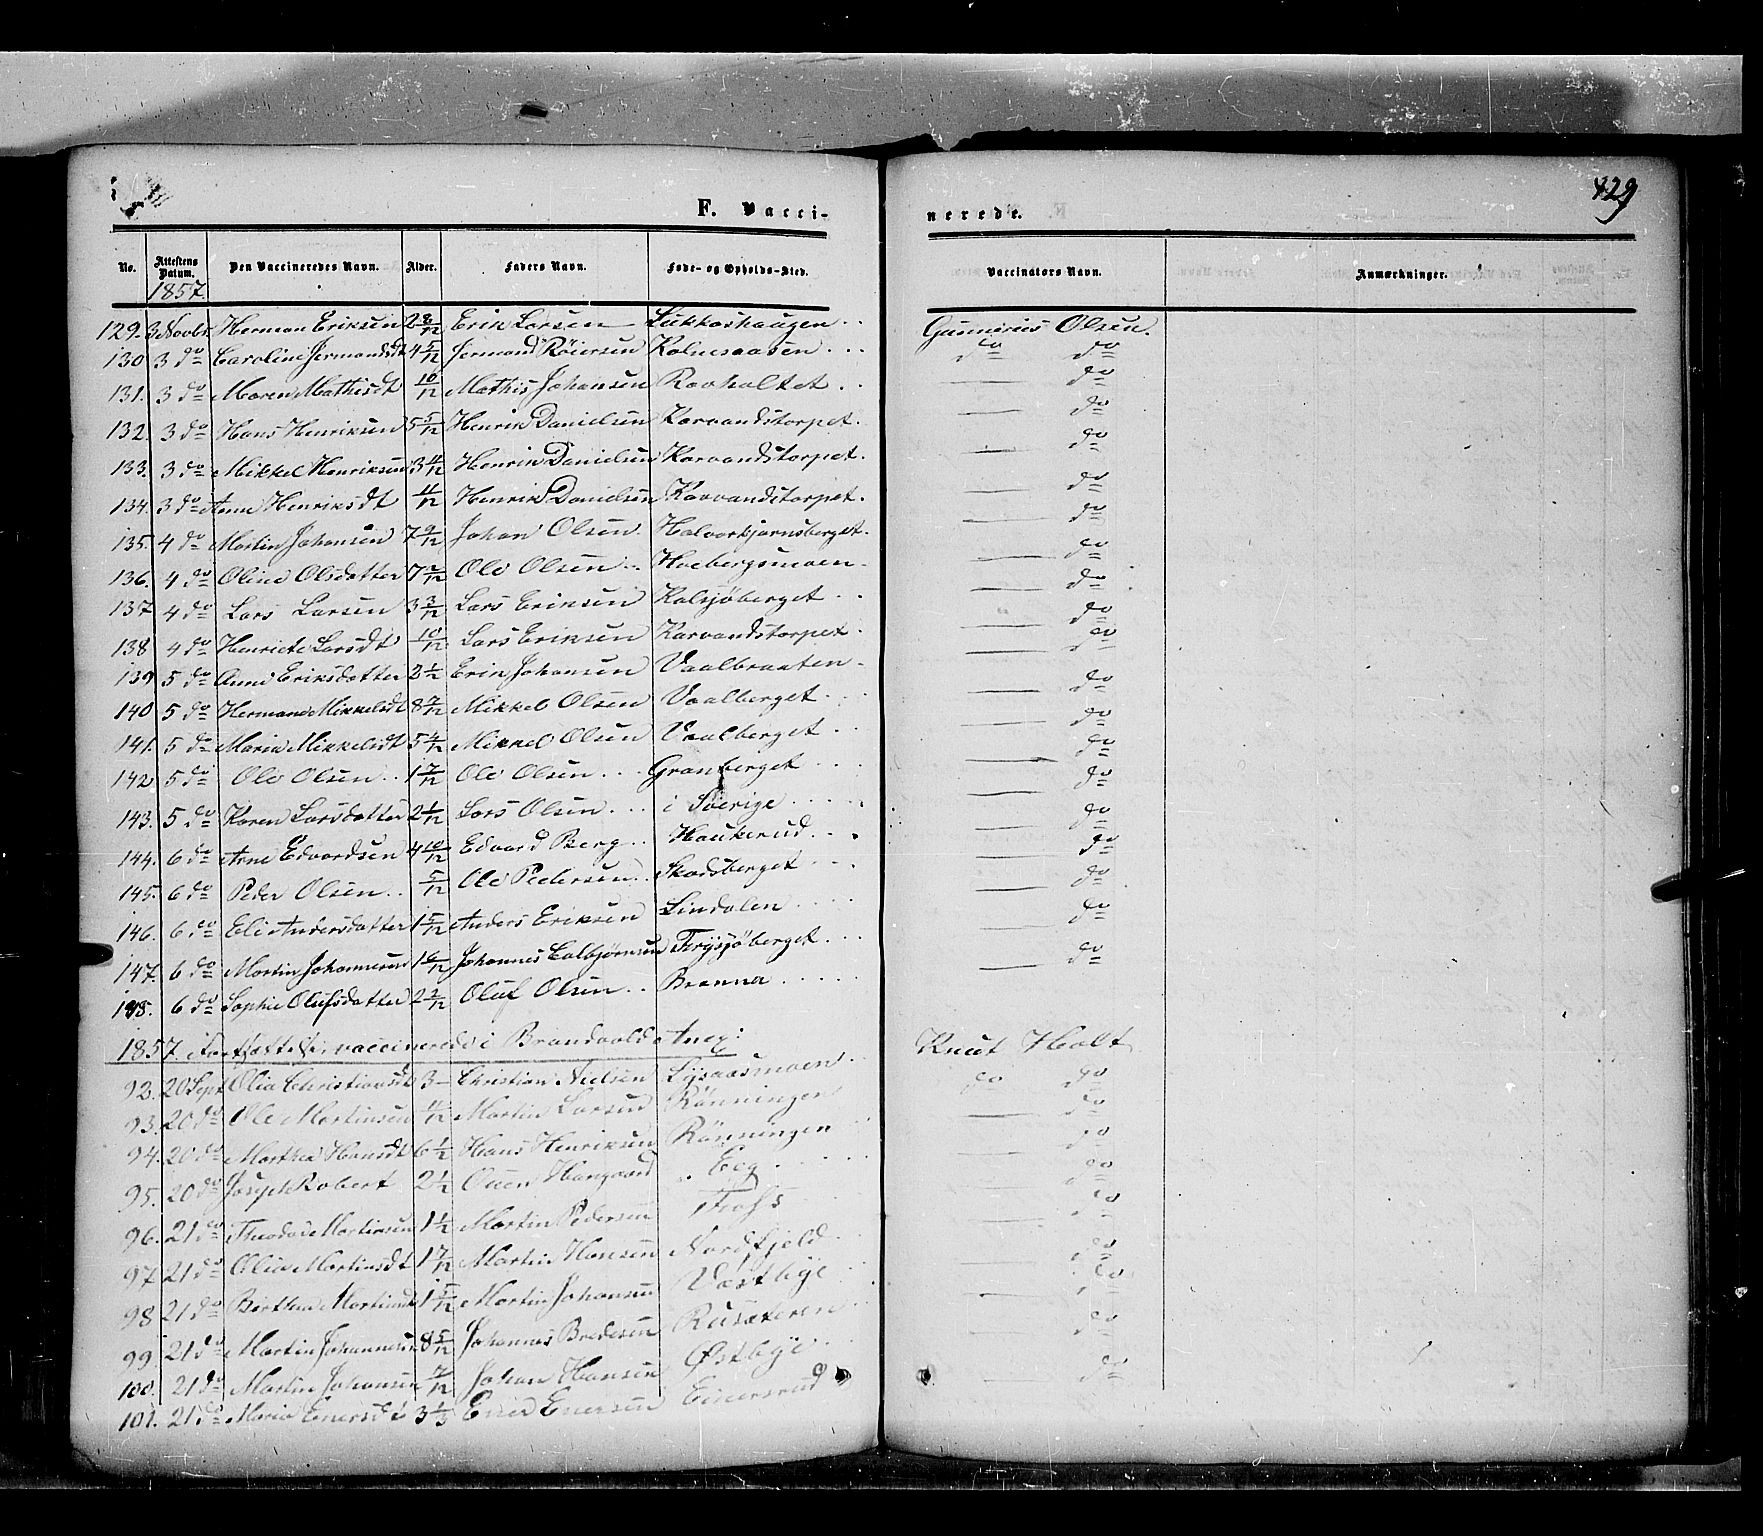 429
F. Vacci-
nerede.
No. Attestens Datum. Den Vaccineredes Navn. Alder. Faders Navn. Føde- og Opholds-Sted. Vaccinators Navn. Anmærkninger.
1857.
129. 3 Novbr. Herman Eriksen 2 8/12 Erik Larsen Lukkashaugen Gunnerius Olsen.
130 3 do Caroline Jermandsdt 4 5/12 Jermand Röiersen Kolnesaasen do do
131. 3 do Maren Mathisdt 10/12 Mathis Johansen Ravholtet — do
132. 3 do Hans Henriksen 5 5/12 Henrik Danielsen Karvandstorpet. — do
133. 3 do Mikkel Henriksen 3 11/12 Henrik Danielsen Karvandstorpet. — do
134. 3 do Anne Henriksdt 11/12 Henrik Danielsen Karvandstorpet. — do
135. 4 do Martin Johansen 7 9/12 Johan Olsen. Halvorkjernsberget. — do
136. 4 do Oline Olsdatter 7 /12 Ole Olsen Hoebergsmoen — do
137 4 do Lars Larsen 3 3/12 Lars Eriksen Kalsjöberget — do
138 4 do Henriete Larsdt 10/12 Lars Eriksen Karvandstorpet. do
139 5 do Anne Eriksdatter 2 1/2 Erik Johansen Vaalbraaten — do
140 5 do Hermane Mikkelsdt 8 7/12 Mikkel Olsen Vaalberget — do
141. 5 do Maria Mikkelsdt 5 4/12 Mikkel Olsen Vaalberget — do
142 5 do Ole Olsen 1 7/12 Ole Olsen Granberget — do
143. 5 do Karen Larsdatter 2 1/12 Lars Olsen i Sverige — do
144. 6 do Arne Edvardsen 4 10/12 Edvard Berg Haukerud — do
145. 6 do Peder Olsen 5/12 Ole Pedersen Skarsberget — do
146. 6 do Eli Andersdatter 1 5/12 Anders Eriksen Lindalen — do
147. 6 do Martin Johannesen 1 6/12 Johannes Frysjöberget — do
148. 6 do Sophie Olufsdatter 2 2/12 Oluf Olsen Brenna — do
1857. Fortsættelse, vaccinerede i Brandvold Anex:
92. 20 Sept Olia Christiansdt 3 — Christian Nielsen Lysaasmoen Knut Holt
93. 20 do Ole Martinsen 11/12 Martin Larsen Rönningen do do
94. 20 do Marthea Hansdt 6 1/2 Hans Henriksen Rönningen — do
95. 20 do Joseph Robert 2 1/2 Eeg — do
96. 21 do Theodor Martinsen 1 1/2 Martin Pedersen — do
97. 21 do Olia Martinsdt 1 7/12 Martin Hansen Nordfjeld — do
98 21 do Berthea 1 5/12 Martin Johansen Vestbye — do
99. 21 do Martin Johannesen 8 5/12 Johannes Bredesen Rusæteren do
100. 21 do Martin Johansen 7/12 Johan Hansen Østbye — do
101. 21 do Maria Enersdt 3 1/3 Ener Enersen Enersrud — do